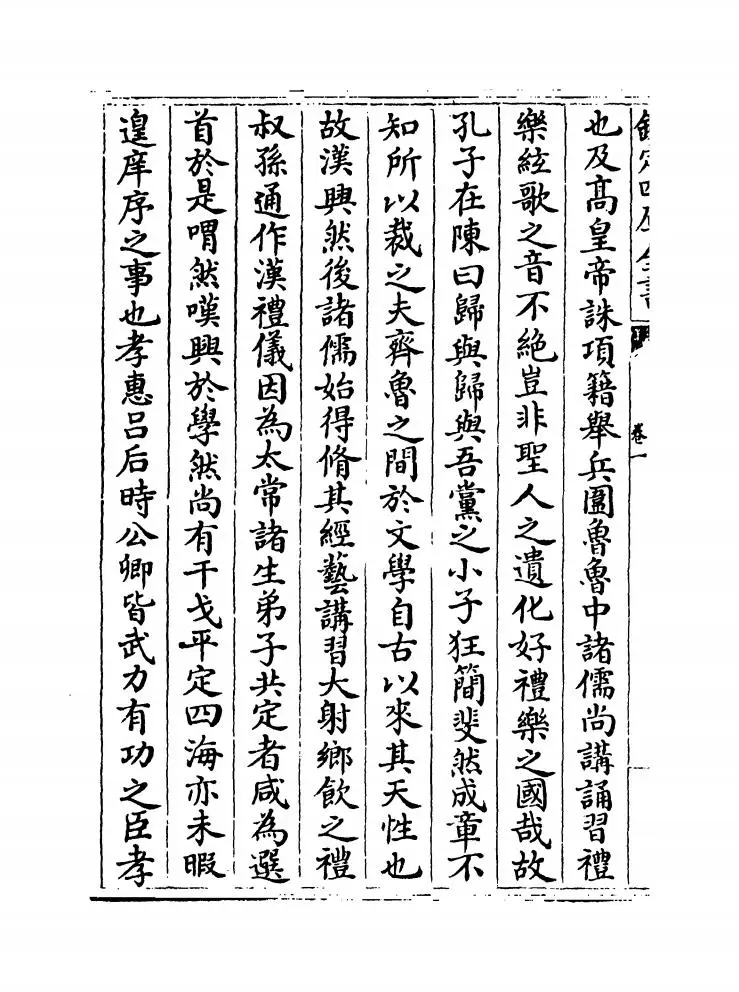 欽定四庫全書
卷一
也及髙皇帝誅項籍舉兵圍魯魯中諸儒尚講誦習禮
樂絃歌之音不絶豈非聖人之遺化好禮樂之國哉故
孔子在陳曰歸與歸與吾黨之小子狂簡斐然成章不
知所以裁之夫齊魯之間於文學自古以來其天性也
故漢興然後諸儒始得脩其經藝講習大射鄉飲之禮
叔孫通作漢禮儀因為太常諸生弟子共定者咸為選
首於是喟然嘆興於學然尚有干戈平定四海亦未暇
遑庠序之事也孝惠吕后時公卿皆武力有功之臣孝